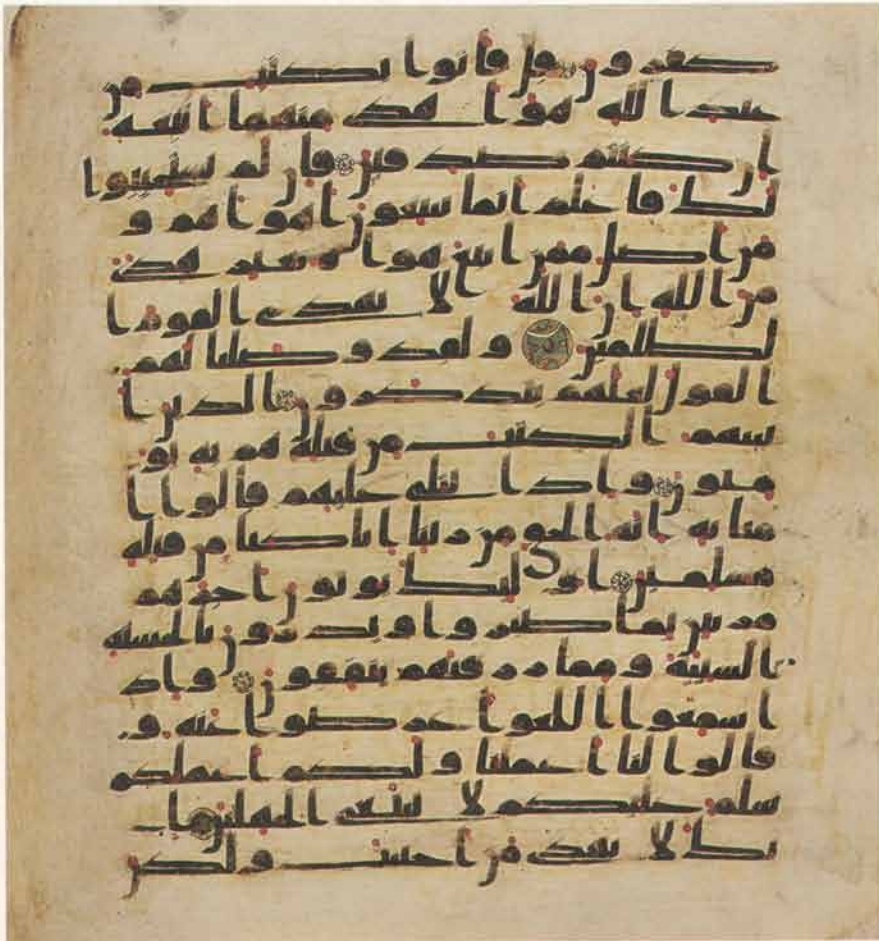 كفرون قل فاتوا بكتب من
عند الله هو اهدى منهما اتبعه
ان كنتم صدقين فان لم يستجيبوا
لك فاعلم انما يتبعون اهواهم و
من اضل ممن اتبع هويه بغير هدى
من الله ان الله لا يهدى القوم ا
لظلمين ولقد وصلنا لهم
القول لعلهم يتذكرون الذين ا
تينهم الكتب من قبله هم به يو
منون واذا يتلى عليهم قالوا ا
منا به انه الحق من ربنا انا كنا من قبله
مسلمين اولئك يوتون اجرهم
مرتين بما صبروا ويدرون بالحسنة
السيئة ومما رزقنهم ينفقون واذ
ا سمعوا اللغو اعرضوا عنه و
قالوا لنا اعملنا ولكم اعملكم
سلم عليكم لا نبتغى الجهلين ا
نك لا تهدى من احببت ولكن